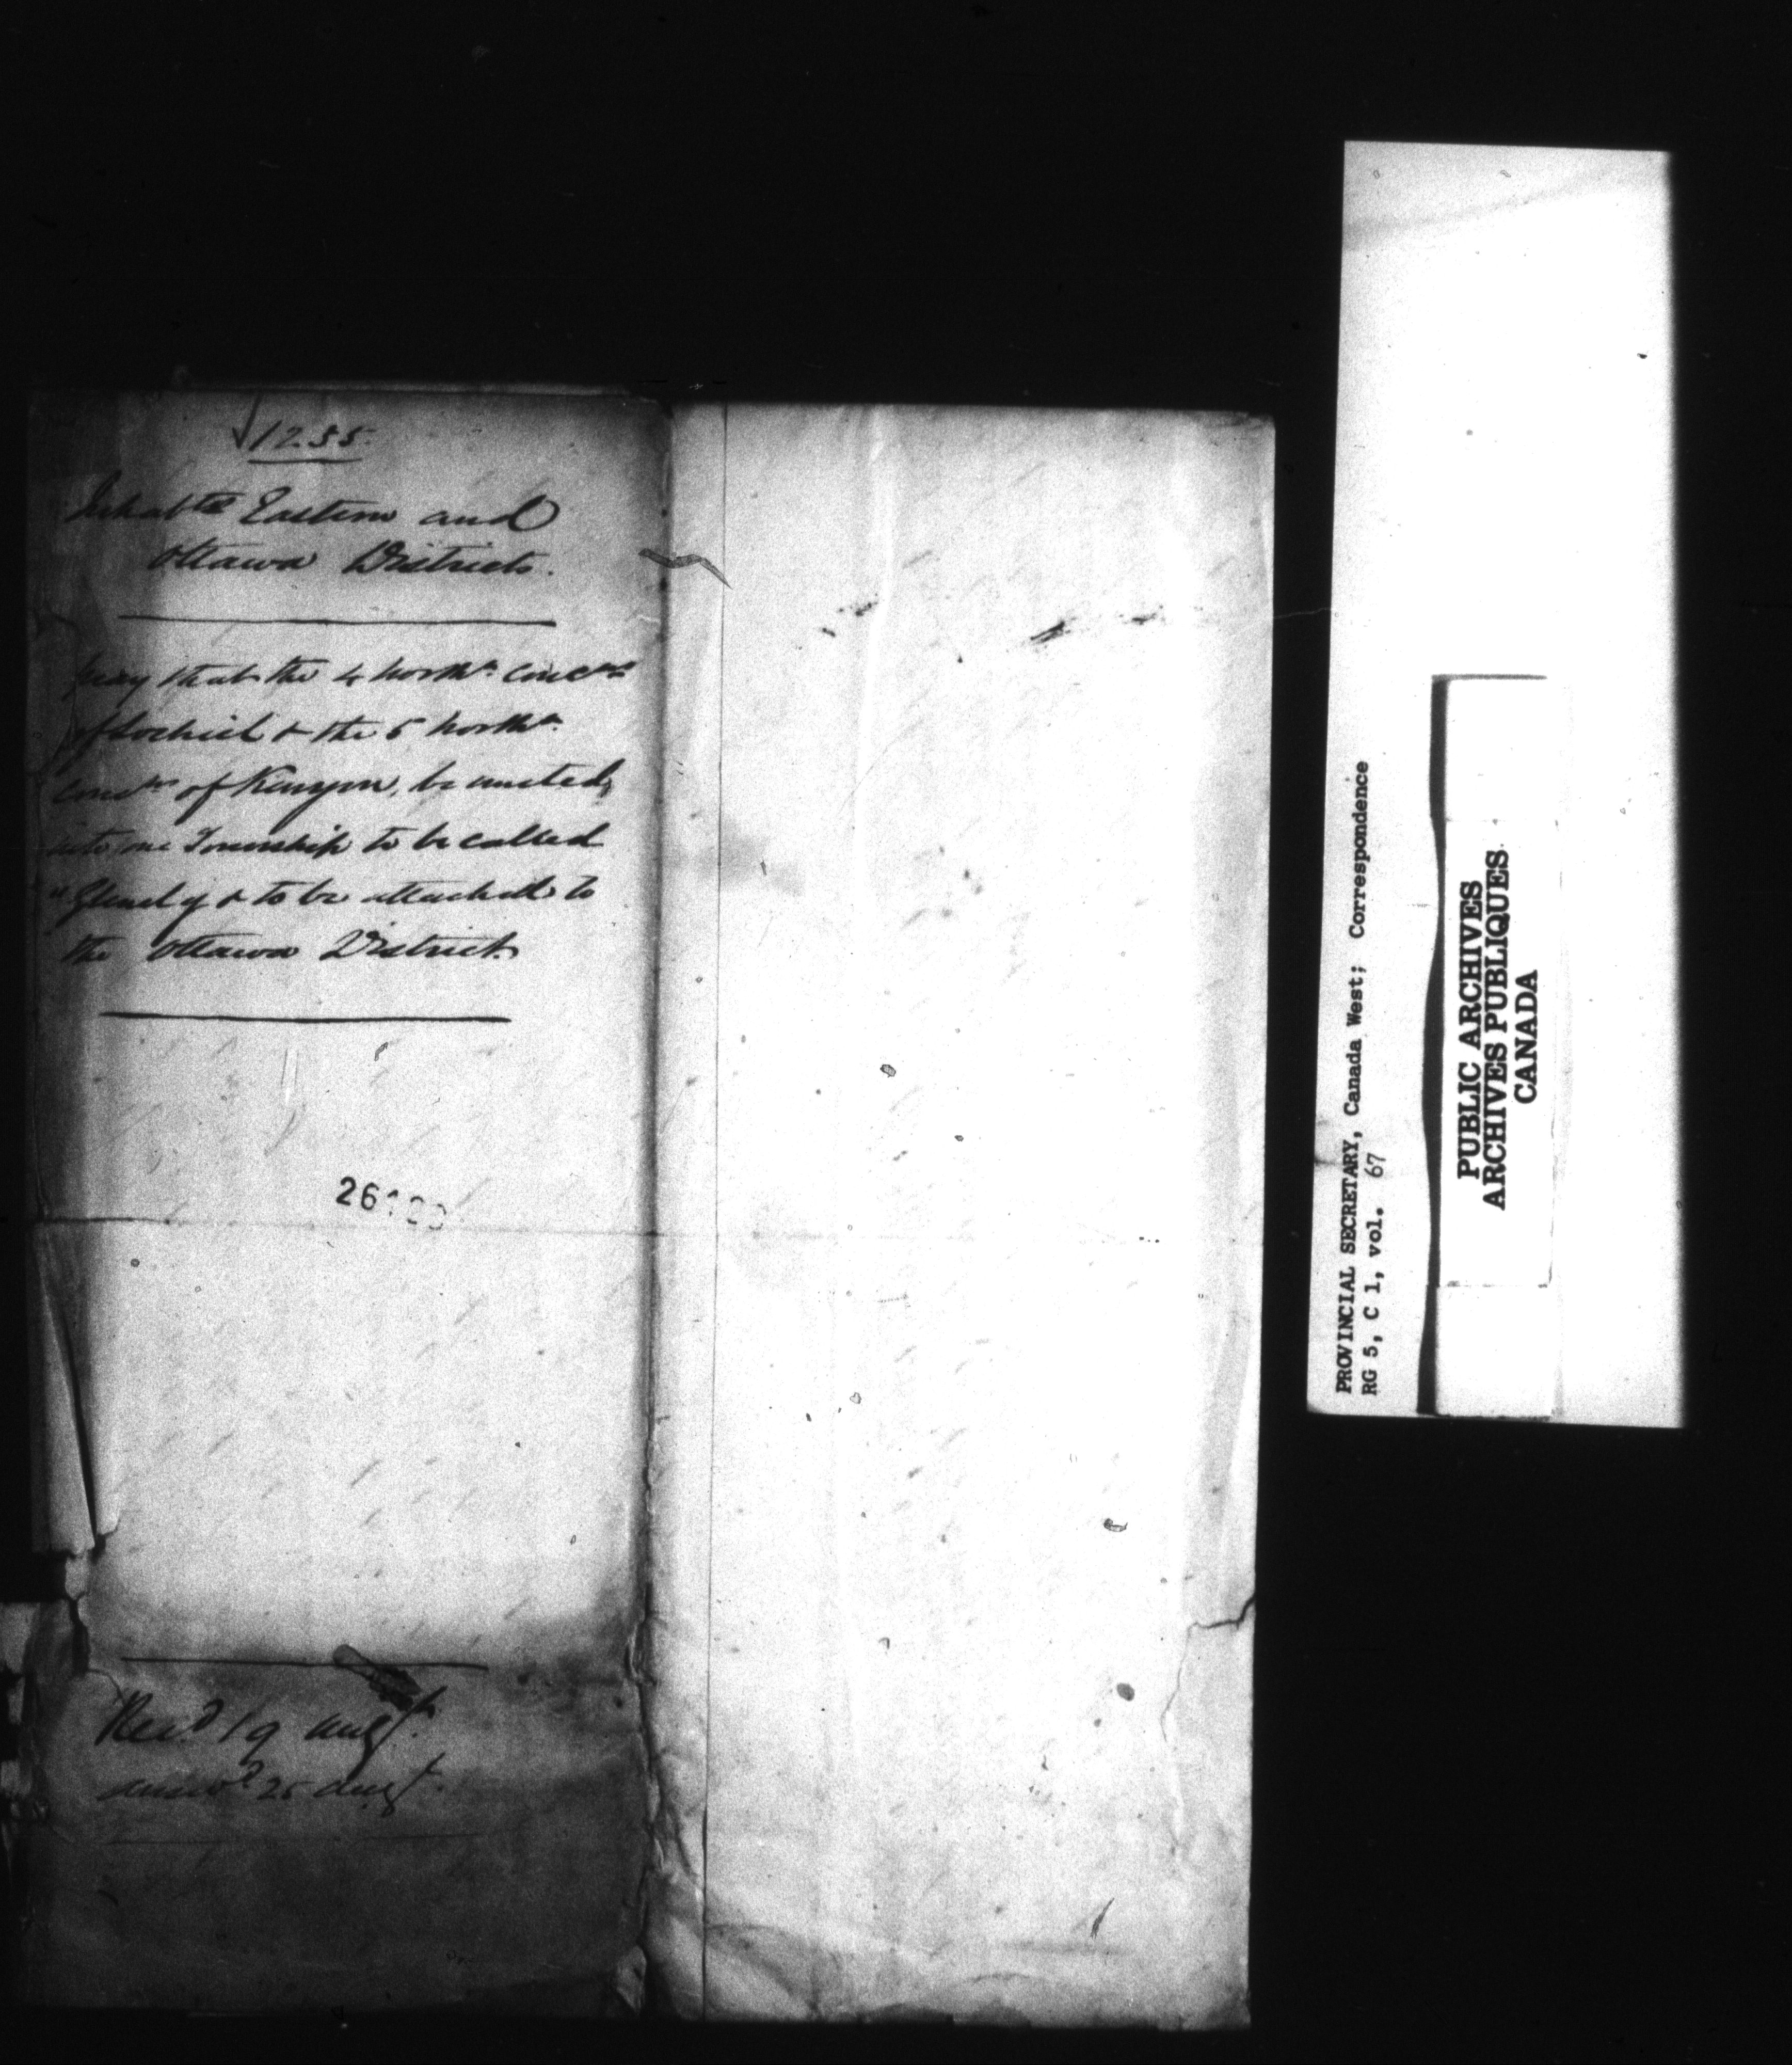 1255.
Inhabts Eastern and
Ottawa Districts.
pray that the 4 northn concns
of Lochiel & the 5 northn
concns of Kenyon, be united,
into one Township to be called
& to be attached to
the Ottawa District.
26
Recd 19 augt.
answd 25 augt.
PROVINCIAL SECRETARY, Canada West; Correspondence
RG 5, C 1, vol. 67
PUBLIC ARCHIVES
ARCHIVES PUBLIQUES
CANADA